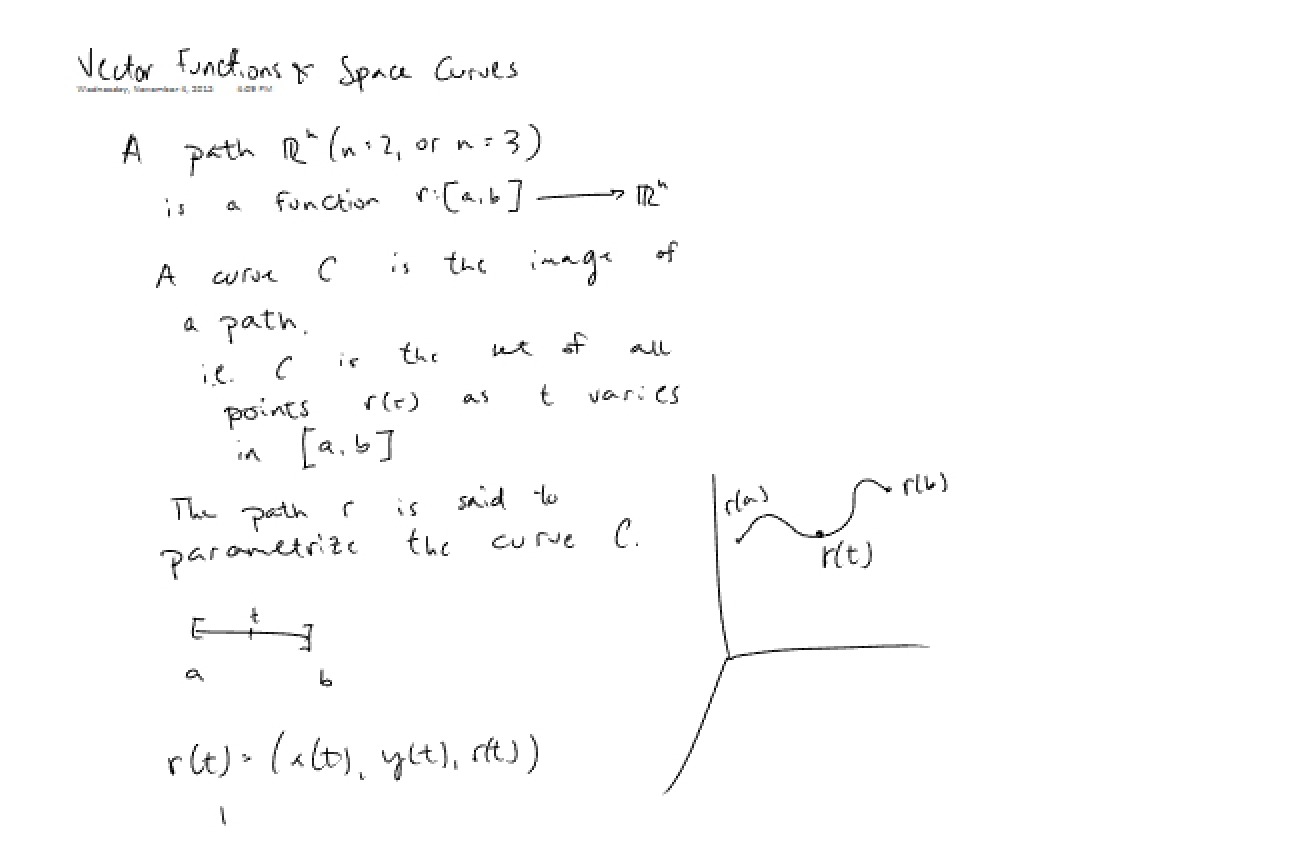 Vector Functions & Space Curves
Wednesday, November 6, 2013 4:09 PM
A path ℝⁿ (n=2, or n=3)
is a function r:[a,b] ⟶ ℝⁿ
A curve C is the image of
a path.
i.e. C is the set of all
points r(t) as t varies
in [a,b]
The path r is said to
parametrize the curve C.
r(a)
r(b)
r(t)
t
a b
r(t) = (x(t), y(t), r(t))